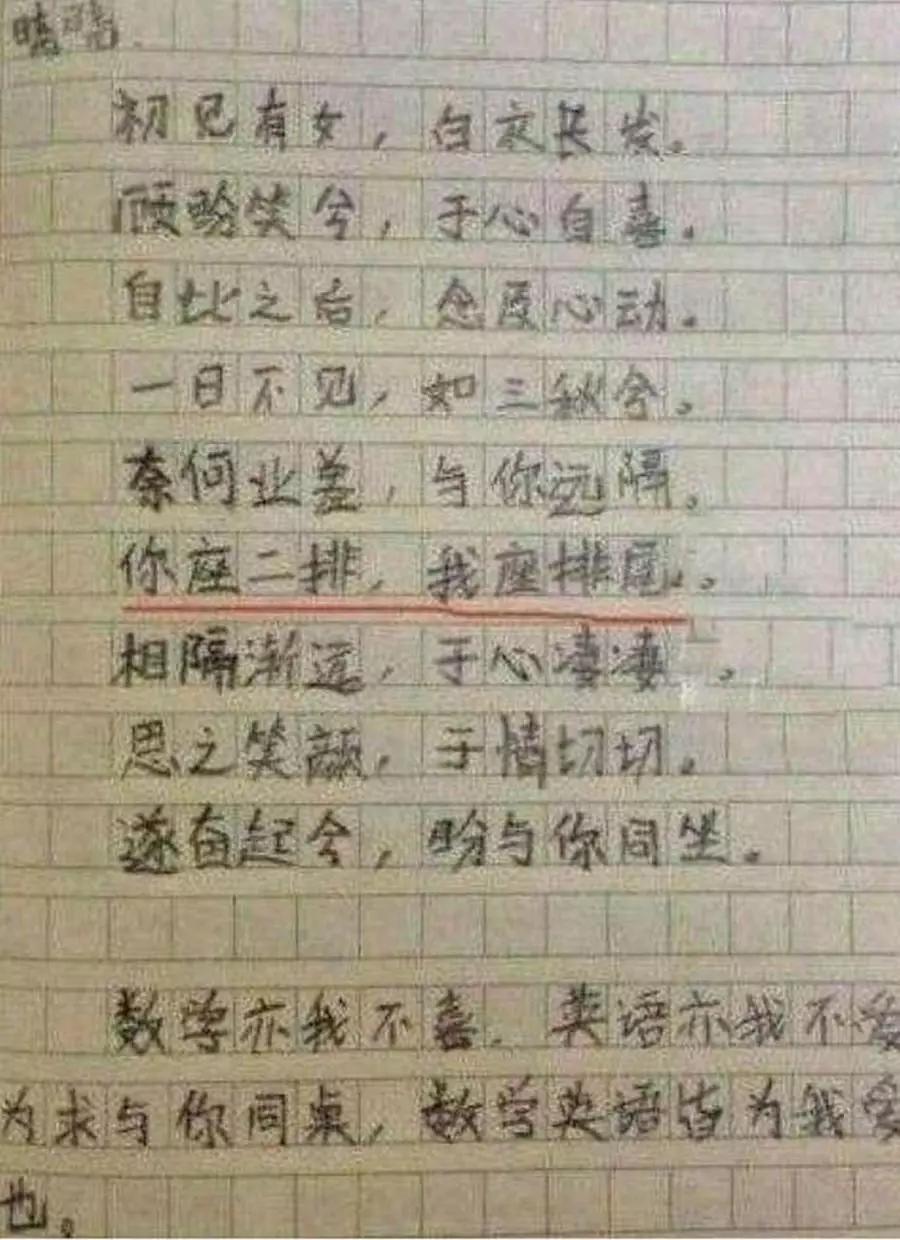 晓晓.
初见有女，白衣长发。
顾盼笑兮，于心自喜。
自此之后，念及心动。
一日不见，如三秋兮。
奈何业差，与你远隔。
你座二排，我座排尾。
相隔渐远，于心凄凄。
思之笑颜，于情切切。
遂奋起兮，盼与你同坐。
数学亦我不喜．英语亦我不爱
为求与你同桌，数学英语皆为我爱
也。